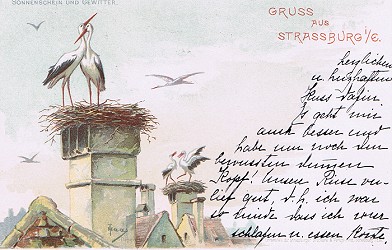 SONNENSCHEIN UND GEWITTER.
GRUSS
AUS
STRASSBURG i/E.
herzlichen
u.
Kuss dafür
Es geht mir
auch besser nur
habe nur noch den
bewussten dummen
Kopf! Unsere Reise ver-
lief gut, d. h. ich war
so müde dass ich vor
schlafen u. essen keine